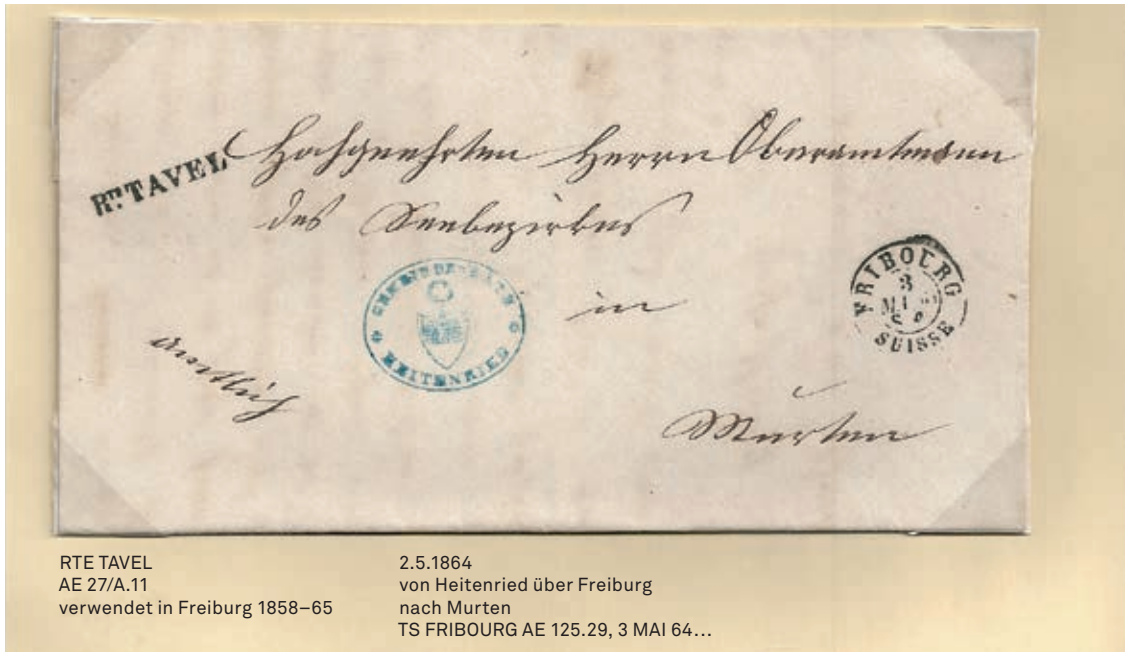 RTE TAVEL
Hochgeehrten Herrn Oberamtmann
des Seebezirkes
FRIBOURG
3
MAI
SUISSE
GEMEINDERATH
HEITENRIED
in
amtlich
Murten
RTE TAVEL
AE 27/A.11
verwendet in Freiburg 1858–65
2.5.1864
von Heitenried über Freiburg
nach Murten
TS FRIBOURG AE 125.29, 3 MAI 64...